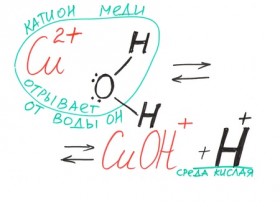 КАТИОН МЕДИ
Cu²⁺ H
ОТРЫВАЕТ :O: ⇌
ОТ ВОДЫ OH H
⇌ CuOH⁺ + H⁺
СРЕДА КИСЛАЯ